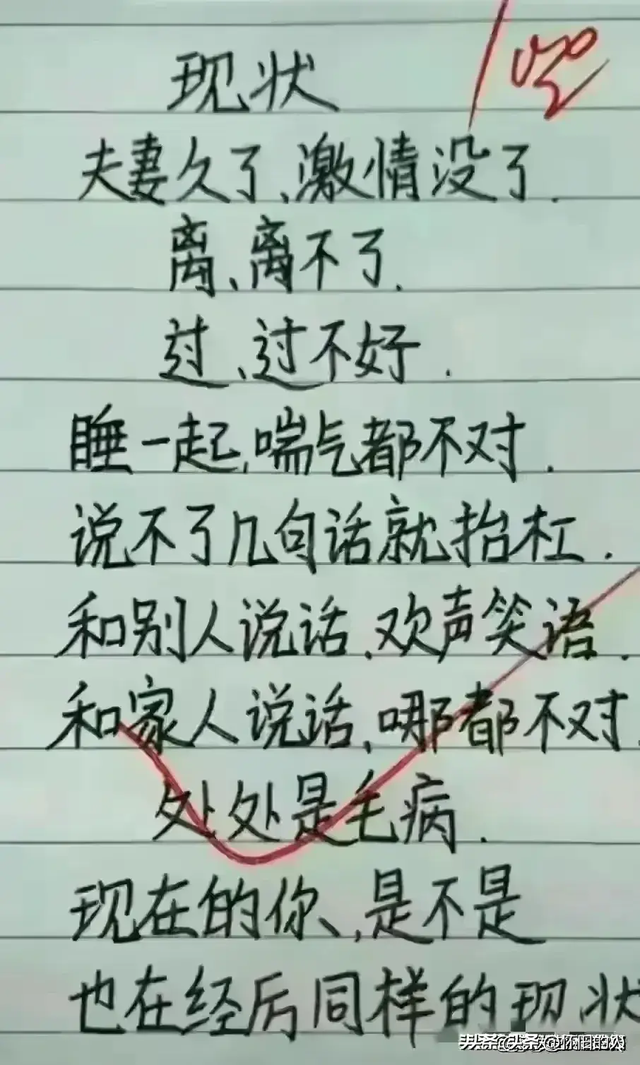 100
现状
夫妻久了、激情没了.
离、离不了.
过、过不好.
睡一起,喘气都不对.
说不了几句话就抬杠.
和别人说话、欢声笑语.
和家人说话,哪都不对
处处是毛病.
现在的你、是不是
也在经历同样的现状
头条